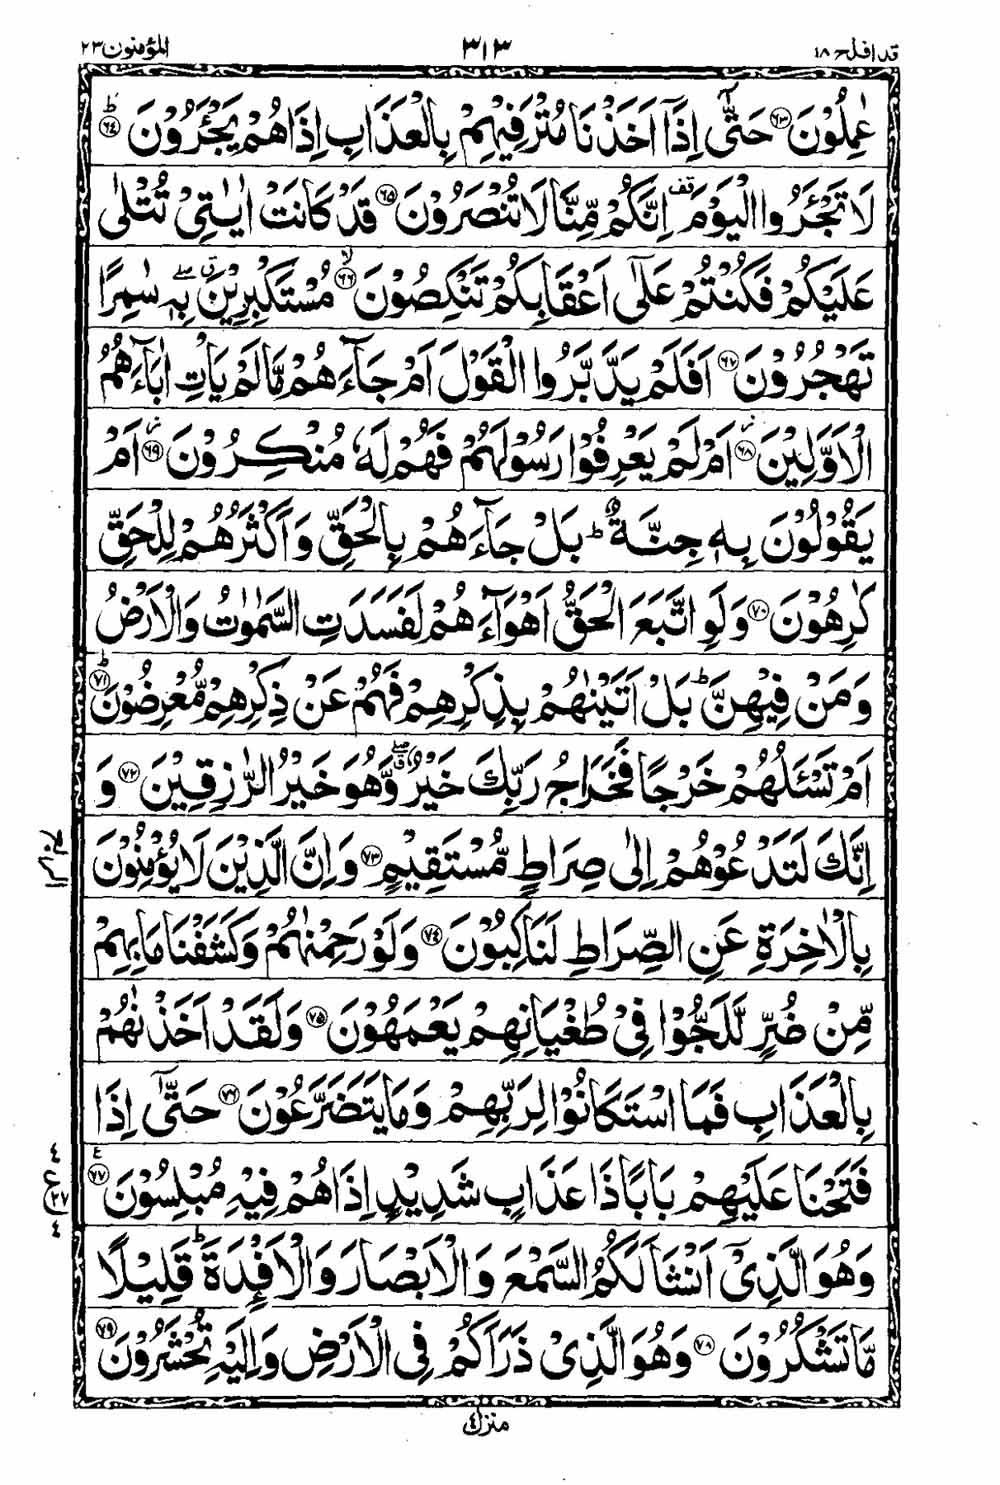 قد افلح ١٨ ٣١٣ المؤمنون ٢٣
عٰمِلُوْنَ ﴿٦٣﴾ حَتّٰۤى اِذَاۤ اَخَذْنَا مُتْرَفِيْهِمْ بِالْعَذَابِ اِذَا هُمْ يَجْـَٔرُوْنَ ؕ﴿٦٤﴾
لَا تَجْـَٔرُوا الْيَوْمَ قف اِنَّكُمْ مِّنَّا لَا تُنْصَرُوْنَ ﴿٦٥﴾ قَدْ كَانَتْ اٰيٰتِيْ تُتْلٰى
عَلَيْكُمْ فَكُنْتُمْ عَلٰۤى اَعْقَابِكُمْ تَنْكِصُوْنَ ۙ﴿٦٦﴾ مُسْتَكْبِرِيْنَ ۖۗ بِهٖ سٰمِرًا
تَهْجُرُوْنَ ﴿٦٧﴾ اَفَلَمْ يَدَّبَّرُوا الْقَوْلَ اَمْ جَآءَهُمْ مَّا لَمْ يَاْتِ اٰبَآءَهُمُ
الْاَوَّلِيْنَ ؗ﴿٦٨﴾ اَمْ لَمْ يَعْرِفُوْا رَسُوْلَهُمْ فَهُمْ لَهٗ مُنْكِرُوْنَ ؗ﴿٦٩﴾ اَمْ
يَقُوْلُوْنَ بِهٖ جِنَّةٌ ؕ بَلْ جَآءَهُمْ بِالْحَقِّ وَاَكْثَرُهُمْ لِلْحَقِّ
كٰرِهُوْنَ ﴿٧٠﴾ وَلَوِ اتَّبَعَ الْحَقُّ اَهْوَآءَهُمْ لَفَسَدَتِ السَّمٰوٰتُ وَالْاَرْضُ
وَمَنْ فِيْهِنَّ ؕ بَلْ اَتَيْنٰهُمْ بِذِكْرِهِمْ فَهُمْ عَنْ ذِكْرِهِمْ مُّعْرِضُوْنَ ؕ﴿٧١﴾
اَمْ تَسْـَٔلُهُمْ خَرْجًا فَخَرَاجُ رَبِّكَ خَيْرٌ ۖۗ وَّهُوَ خَيْرُ الرّٰزِقِيْنَ ﴿٧٢﴾ وَ
اِنَّكَ لَتَدْعُوْهُمْ اِلٰى صِرَاطٍ مُّسْتَقِيْمٍ ﴿٧٣﴾ وَاِنَّ الَّذِيْنَ لَا يُؤْمِنُوْنَ
الرابع
بِالْاٰخِرَةِ عَنِ الصِّرَاطِ لَنٰكِبُوْنَ ﴿٧٤﴾ وَلَوْ رَحِمْنٰهُمْ وَكَشَفْنَا مَا بِهِمْ
مِّنْ ضُرٍّ لَّلَجُّوْا فِيْ طُغْيَانِهِمْ يَعْمَهُوْنَ ﴿٧٥﴾ وَلَقَدْ اَخَذْنٰهُمْ
بِالْعَذَابِ فَمَا اسْتَكَانُوْا لِرَبِّهِمْ وَمَا يَتَضَرَّعُوْنَ ﴿٧٦﴾ حَتّٰۤى اِذَا
فَتَحْنَا عَلَيْهِمْ بَابًا ذَا عَذَابٍ شَدِيْدٍ اِذَا هُمْ فِيْهِ مُبْلِسُوْنَ ﴿٧٧﴾
وَهُوَ الَّذِيْۤ اَنْشَاَ لَكُمُ السَّمْعَ وَالْاَبْصَارَ وَالْاَفْـِٕدَةَ ؕ قَلِيْلًا
مَّا تَشْكُرُوْنَ ﴿٧٨﴾ وَهُوَ الَّذِيْ ذَرَاَكُمْ فِي الْاَرْضِ وَاِلَيْهِ تُحْشَرُوْنَ ﴿٧٩﴾
منزل ٤